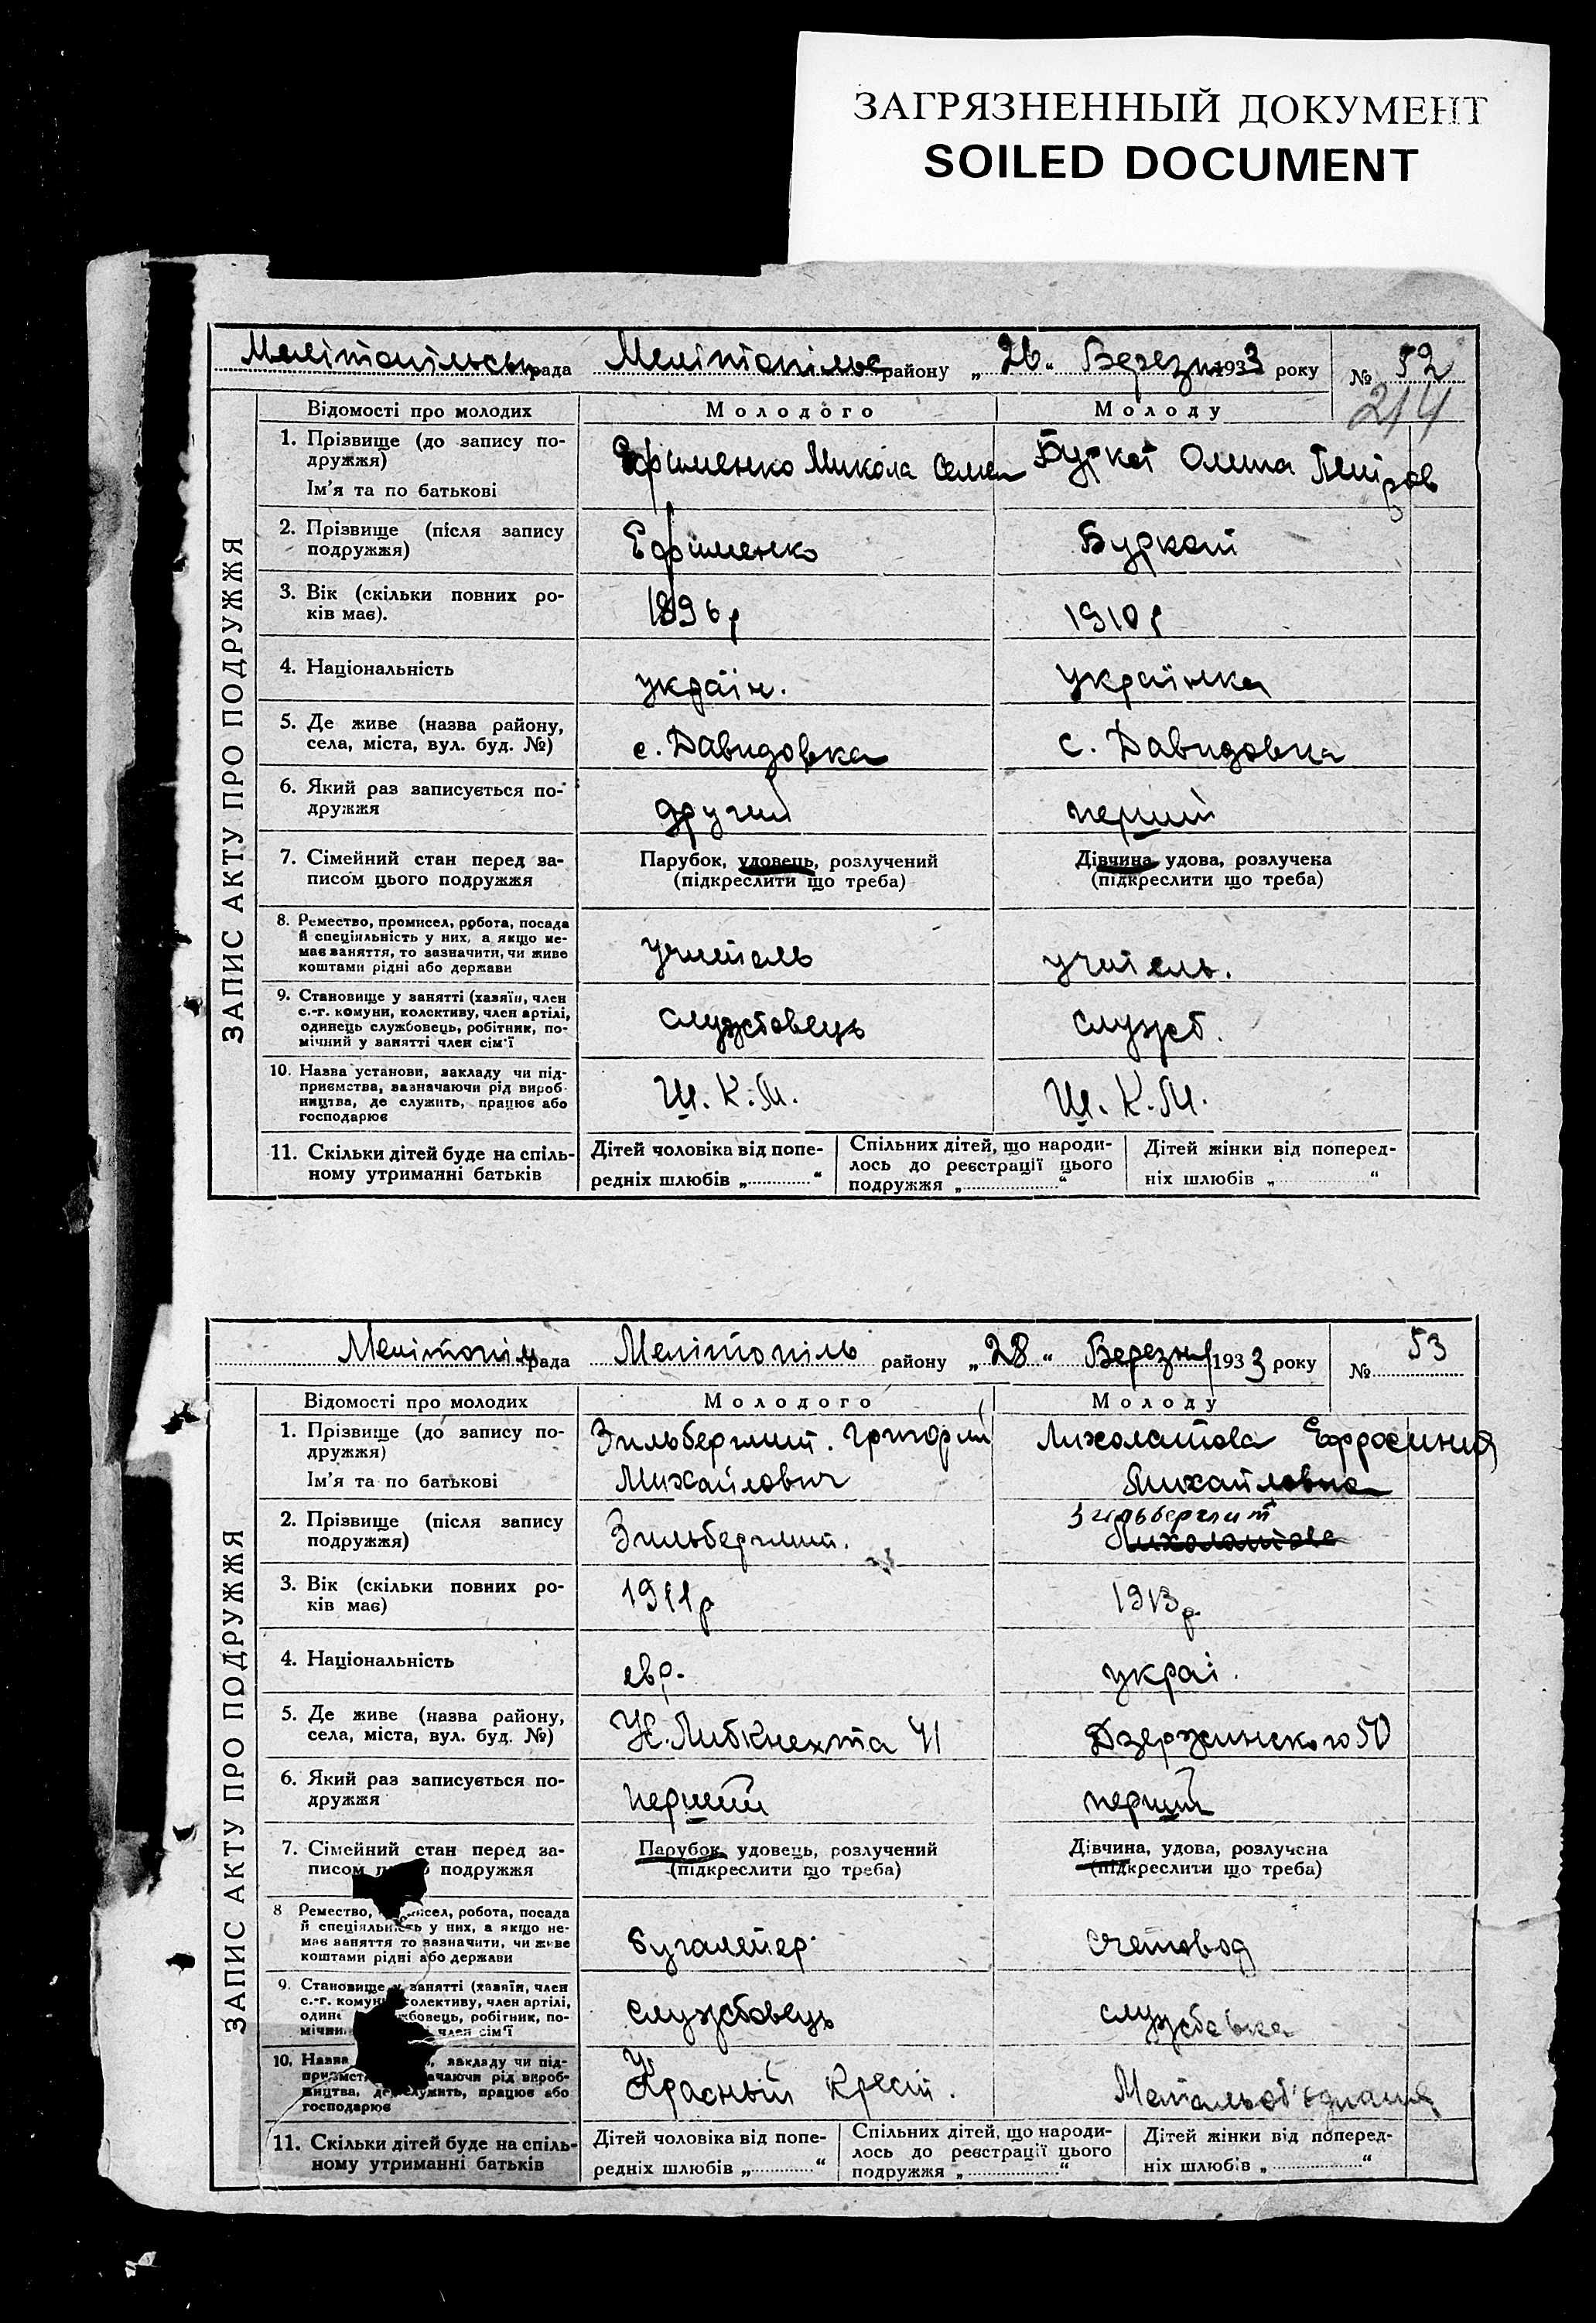 ЗАГРЯЗНЕННЫЙ ДОКУМЕНТ
SOILED DOCUMENT
рада Мелітопільс району „26“ Березн 1933 року № 52
214
ЗАПИС АКТУ ПРО ПОДРУЖЖЯ
Відомості про молодих Молодого Молоду
1. Прізвище (до запису по-
дружжя)
Ім'я та по батькові
Ефименко Микола Семен Буркат Олена Петров
2. Прізвище (після запису
подружжя)
Ефименко Буркат
3. Вік (скільки повних ро-
ків має).
1896 р 1910 р
4. Національність
україн. українка
5. Де живе (назва району,
села, міста, вул. буд. №)
с. Давидовка с. Давидовка
6. Який раз записується по-
дружжя
другий перший
7. Сімейний стан перед за-
писом цього подружжя
Парубок, удовець, розлучений Дівчина удова, розлучека
(підкреслити що треба) (підкреслити що треба)
8. Ремество, промисел, робота, посада
й спеціяльність у них, а якщо не-
має заняття, то зазначити, чи живе
коштами рідні або держави
учитель учитель.
9. Становище у занятті (хазяїн, член
с.-г. комуни, колективу, член артілі,
одинець службовець, робітник, по-
мічний у занятті член сім'ї
службовець служб.
10. Назва установи, закладу чи під-
приємства, зазначаючи рід вироб-
ництва, де служить, працює або
господарює
Ш. К. М. Ш. К. М.
11. Скільки дітей буде на спіль-
ному утриманні батьків
Дітей чоловіка від попе-
редніх шлюбів „ “
Спільних дітей, що народи-
лось до реєстрації цього
подружжя „ “
Дітей жінки від поперед-
ніх шлюбів „ “
Мелітопіль рада Мелітопіль району „28“ Березня 1933 року № 53
ЗАПИС АКТУ ПРО ПОДРУЖЖЯ
Відомості про молодих Молодого Молоду
1. Прізвище (до запису по-
дружжя)
Ім'я та по батькові
Зильберглит. Григорий Лихолатова Ефросиния
Михайлович Михайловна
2. Прізвище (після запису
подружжя)
Зильберглит
Зильберглит. Лихолатова
3. Вік (скільки повних ро-
ків має)
1911 р 1913 р.
4. Національність
евр. украі.
5. Де живе (назва району,
села, міста, вул. буд. №)
К. Либкнехта 41 Дзержинского 50
6. Який раз записується по-
дружжя
перший перший
7. Сімейний стан перед за-
писом подружжя
Парубок, удовець, розлучений Дівчина, удова, розлучена
(підкреслити що треба) (підкреслити що треба)
8 Ремество, робота, посада
й спеціяльність у них, а якщо не-
має заняття то зазначити, чи живе
коштами рідні або держави
бугалтер счетовод
9. Становище у занятті (хазяїн, член
с.-г. комуни колективу, член артілі,
робітник, по-
член сім'ї
службовець службовка
10. Назва закладу чи під-
рід вироб-
ництва, де служить, працює або
господарює
Красный Крест. Метальоб'єднання
11. Скільки дітей буде на спіль-
ному утриманні батьків
Дітей чоловіка від попе-
редніх шлюбів „ “
Спільних дітей, що народи-
лось до реєстрації цього
подружжя „ “
Дітей жінки від поперед-
ніх шлюбів „ “